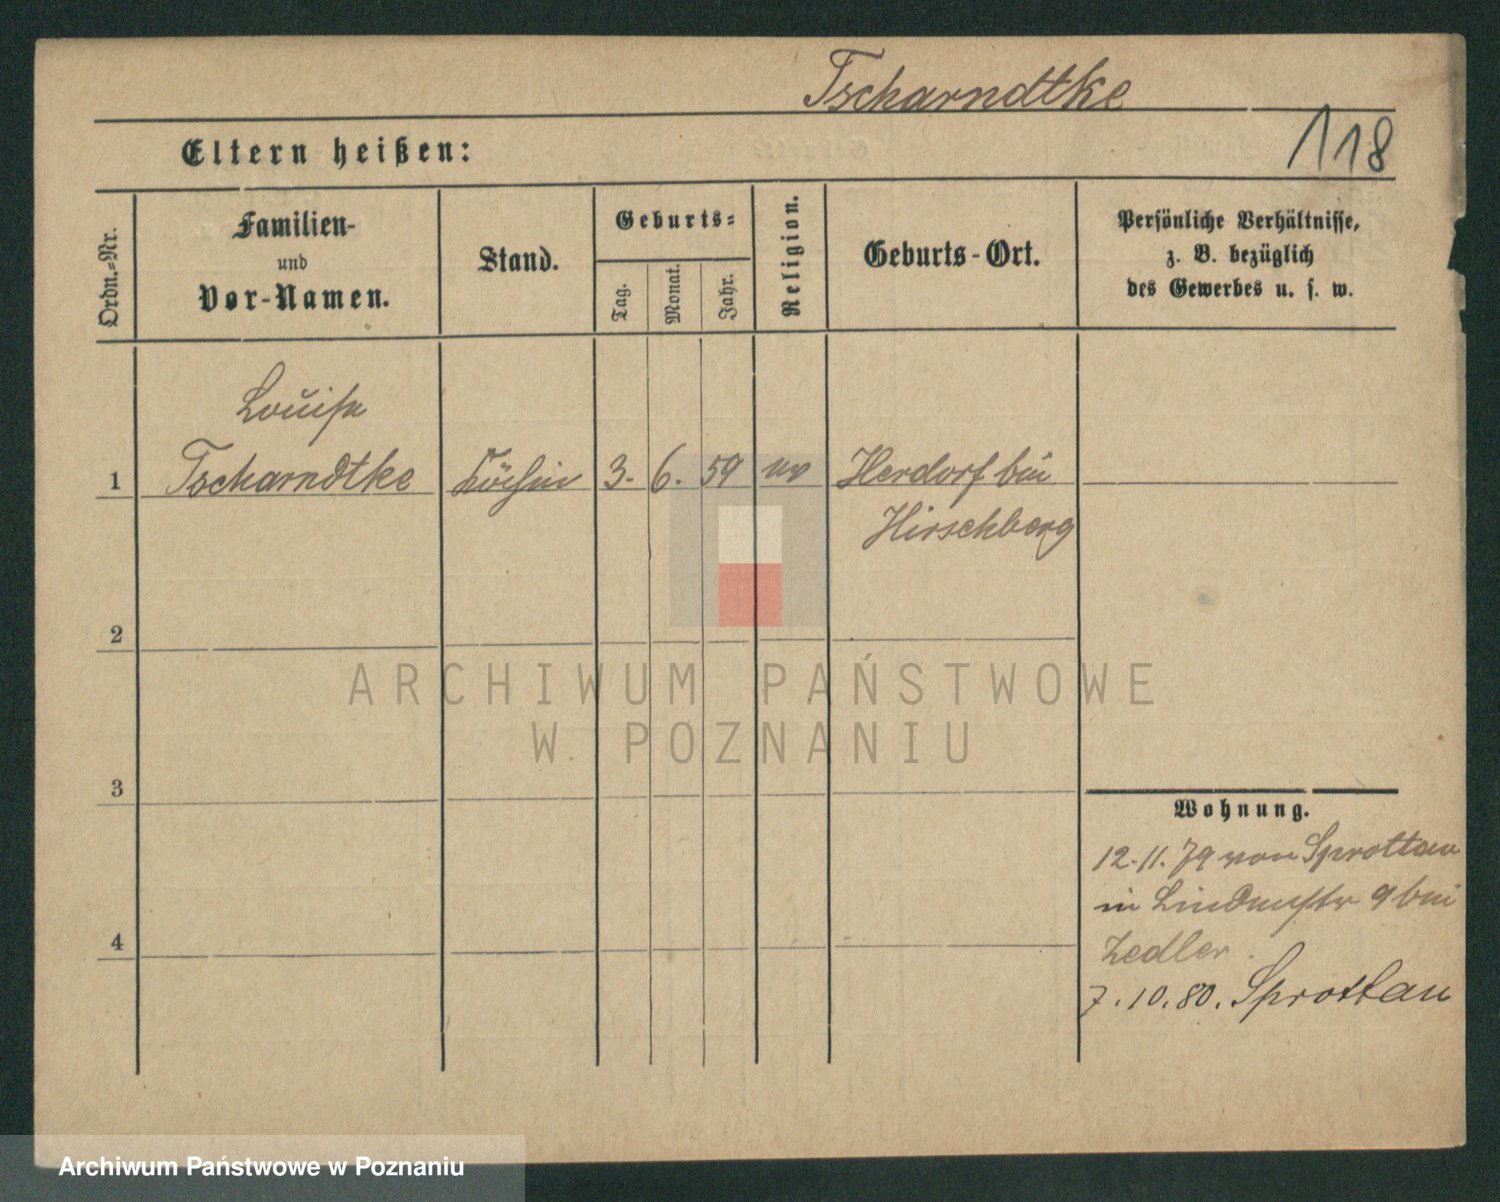 Tscharndtke
118
Eltern heißen:
Ordn.=Nr.
Familien-
und
Vor-Namen.
Stand.
Geburts=
Tag.
Monat.
Jahr.
Religion.
Geburts-Ort.
Persönliche Verhältnisse,
z. B. bezüglich
des Gewerbes u. s. w.
Louise
1 Tscharndtke Köchin 3. 6. 59 ev Herdorf bei
Hirschberg
2
3
4
Wohnung.
12.11.79 von Sprottau
in Lindenstr 9 bei
Zedler.
7.10.80. Sprottau
ARCHIWUM PAŃSTWOWE
W POZNANIU
Archiwum Państwowe w Poznaniu